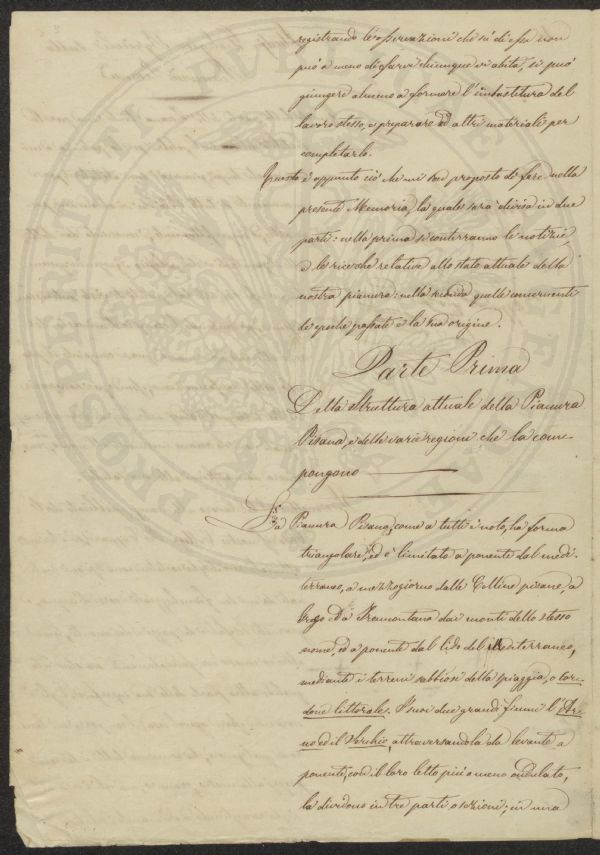 registrando le osservazioni che su di essa non
può a meno di farvi chiunque vi abita, si può
giungere almeno a formare l'imbastitura del
lavoro stesso, e preparare ed altri materiali per
completarlo.
Questo è appunto ciò che mi son proposto di fare nella
presente Memoria, la quale sarà divisa in due
parti: nella prima si conterranno le notizie,
e le ricerche relative allo stato attuale della
nostra pianura: nella seconda quelle concernenti
le epoche passate e la sua origine.
Parte Prima
Della Struttura attuale della Pianura
Pisana, e delle varie regioni che la com-
pongono
La Pianura Pisana, come a tutti è noto, ha forma
triangolare, ed è limitata a ponente dal medi-
terraneo, a mezzogiorno dalle Colline pisane, a
Tramontana dai monti dello stesso
nome, ed a ponente dal lido del Mediterraneo,
mediante i terreni sabbiosi della spiaggia, o cor-
done littorale. I suoi due grandi fiumi l'Ar-
no ed il Serchio, attraversandola da levante a
ponente, con il loro letto più o meno ondulato,
la dividono in tre parti o sezioni; in una